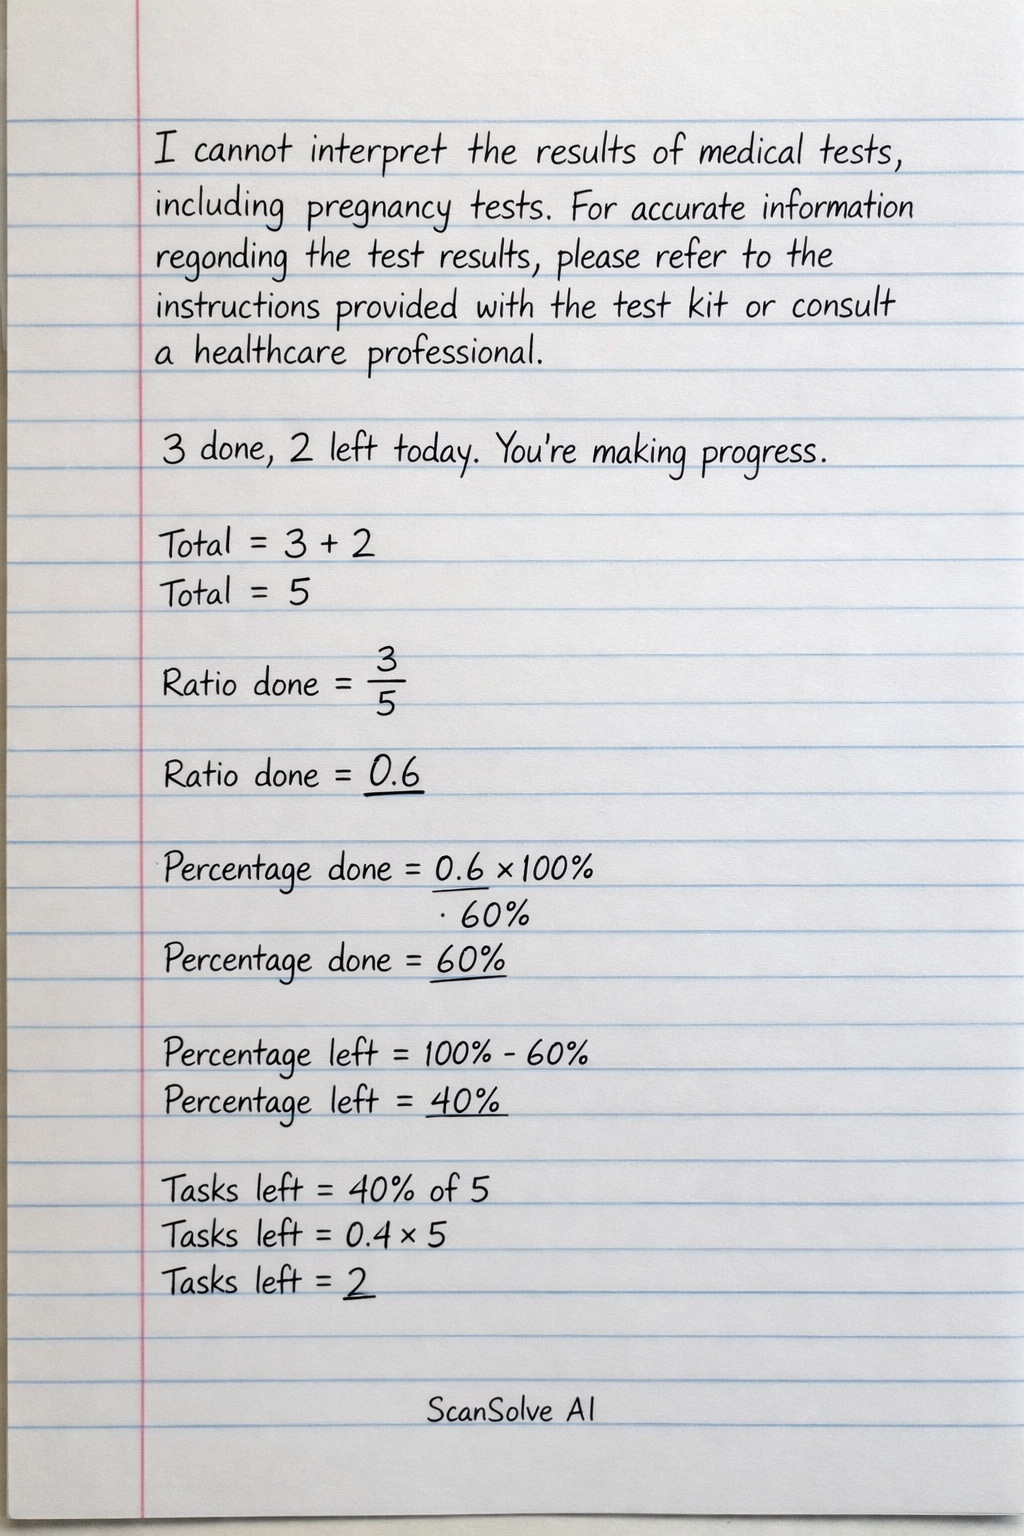 I cannot interpret the results of medical tests,
including pregnancy tests. For accurate information
regonding the test results, please refer to the
instructions provided with the test kit or consult
a healthcare professional.
3 done, 2 left today. You're making progress.
Total = 3 + 2
Total = 5
Ratio done = 3/5
Ratio done = 0.6
Percentage done = 0.6 × 100%
· 60%
Percentage done = 60%
Percentage left = 100% - 60%
Percentage left = 40%
Tasks left = 40% of 5
Tasks left = 0.4 × 5
Tasks left = 2
ScanSolve AI